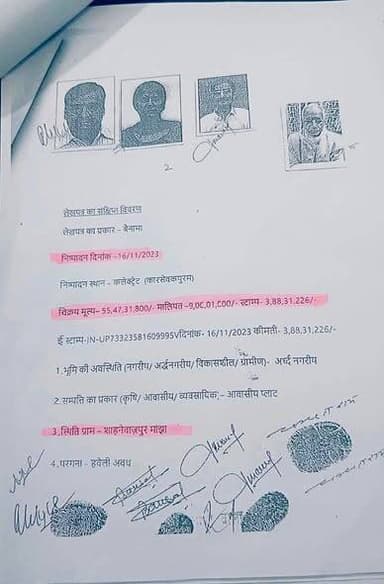 2
लेखपत्र का संक्षिप्त विवरण
लेखपत्र का प्रकार - बैनामा
निष्पादन दिनांक -16/11/2023
निष्पादन स्थान - कलेक्ट्रेट (कारसेवकपुरम)
विक्रय मूल्य- 55,47,31,800/- मालियत -9,00,01,000/- स्टाम्प- 3,88,31,226/-
ई स्टाम्प-IN-UP73323581609995Vदिनांक- 16/11/2023 कीमती- 3,88,31,226/-
1.भूमि की अवस्थिति (नगरीय/ अर्द्धनगरीय/ विकासशील/ ग्रामीण)- अर्ध्द नगरीय
2.सम्पत्ति का प्रकार (कृषि/ आवासीय/ व्यवसायिक)- आवासीय प्लाट
3.स्थिति ग्राम - शाहनेवाजपुर मांझा
4.परगना - हवेली अवध